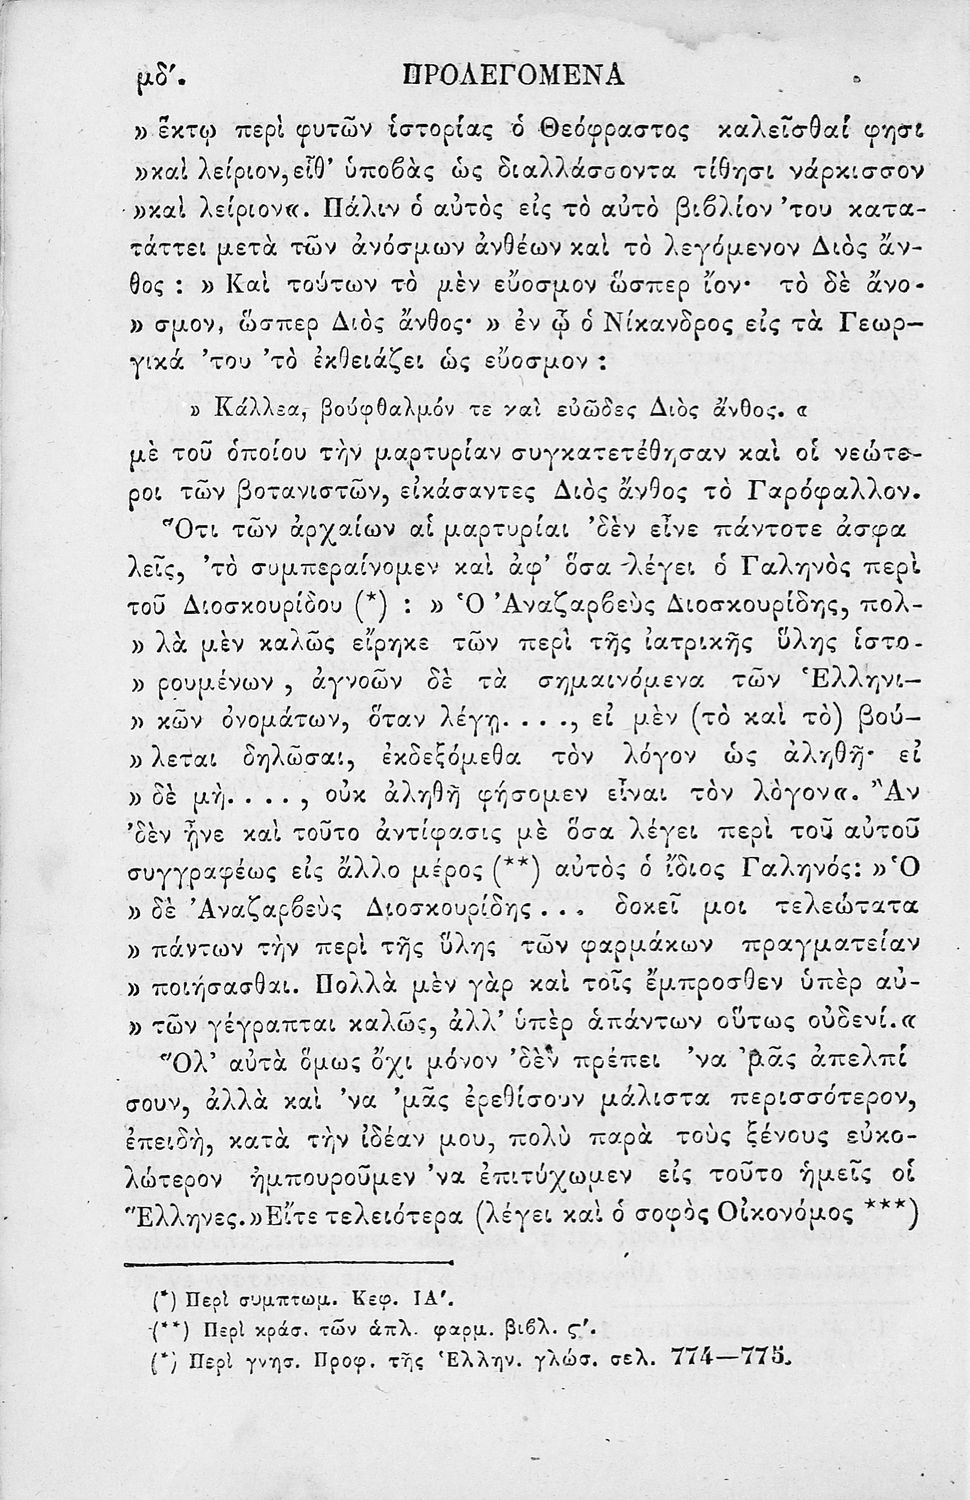 μδ΄.
ΠΡΟΛΕΓΟΜΕΝΑ
» ἕκτῳ περὶ φυτῶν ἱστορίας ὁ Θεόφραστος καλεῖσθαί φησι
»καὶ λείριον, εἶθ' ὑποβὰς ὡς διαλλάσσοντα τίθησι νάρκισσον
»καὶ λείριον«. Πάλιν ὁ αὐτὸς εἰς τὸ αὐτὸ βιβλίον 'του κατα-
τάττει μετὰ τῶν ἀνόσμων ἀνθέων καὶ τὸ λεγόμενον Διὸς ἄν-
θος : » Καὶ τούτων τὸ μὲν εὔοσμον ὥσπερ ἴον· τὸ δὲ ἄνο-
» σμον, ὥσπερ Διὸς ἄνθος· » ἐν ᾧ ὁ Νίκανδρος εἰς τὰ Γεωρ-
γικά 'του 'τὸ ἐκθειάζει ὡς εὔοσμον :
» Κάλλεα, βούφθαλμόν τε καὶ εὐῶδες Διὸς ἄνθος. «
μὲ τοῦ ὁποίου τὴν μαρτυρίαν συγκατετέθησαν καὶ οἱ νεώτε-
ροι τῶν βοτανιστῶν, εἰκάσαντες Διὸς ἄνθος τὸ Γαρόφαλλον.
Ὅτι τῶν ἀρχαίων αἱ μαρτυρίαι 'δὲν εἶνε πάντοτε ἀσφα
λεῖς, 'τὸ συμπεραίνομεν καὶ ἀφ' ὅσα λέγει ὁ Γαληνὸς περὶ
τοῦ Διοσκουρίδου (*) : » Ὁ Ἀναζαρβεὺς Διοσκουρίδης, πολ-
» λὰ μὲν καλῶς εἴρηκε τῶν περὶ τῆς ἰατρικῆς ὕλης ἱστο-
» ρουμένων , ἀγνοῶν δὲ τὰ σημαινόμενα τῶν Ἑλληνι-
» κῶν ὀνομάτων, ὅταν λέγῃ. . . ., εἰ μὲν (τὸ καὶ τὸ) βού-
» λεται δηλῶσαι, ἐκδεξόμεθα τὸν λόγον ὡς ἀληθῆ· εἰ
» δὲ μὴ. . . . , οὐκ ἀληθῆ φήσομεν εἶναι τὸν λὸγον«. Ἂν
'δὲν ἦνε καὶ τοῦτο ἀντίφασις μὲ ὅσα λέγει περὶ τοῦ αὐτοῦ
συγγραφέως εἰς ἄλλο μέρος (**) αὐτὸς ὁ ἴδιος Γαληνός: »Ὁ
» δὲ Ἀναζαρβεὺς Διοσκουρίδης . . . δοκεῖ μοι τελεώτατα
» πάντων τὴν περὶ τῆς ὕλης τῶν φαρμάκων πραγματείαν
» ποιήσασθαι. Πολλὰ μὲν γὰρ καὶ τοῖς ἔμπροσθεν ὑπὲρ αὐ-
» τῶν γέγραπται καλῶς, ἀλλ' ὑπὲρ ἁπάντων οὕτως οὐδενί.«
Ὅλ' αὐτὰ ὅμως ὄχι μόνον 'δὲν πρέπει 'να 'μᾶς ἀπελπί
σουν, ἀλλὰ καὶ 'να 'μᾶς ἐρεθίσουν μάλιστα περισσότερον,
ἐπειδὴ, κατὰ τὴν ἰδέαν μου, πολὺ παρὰ τοὺς ξένους εὐκο-
λώτερον ἠμπουροῦμεν 'να ἐπιτύχωμεν εἰς τοῦτο ἡμεῖς οἱ
Ἕλληνες.»Εἴτε τελειότερα (λέγει καὶ ὁ σοφὸς Οἰκονόμος ***)
(*) Περὶ συμπτωμ. Κεφ. ΙΑ΄.
(**) Περὶ κράσ. τῶν ἁπλ. φαρμ. βιβλ. ς΄.
(*) Περὶ γνησ. Προφ. τῆς Ἑλλην. γλώσ. σελ. 774—775.